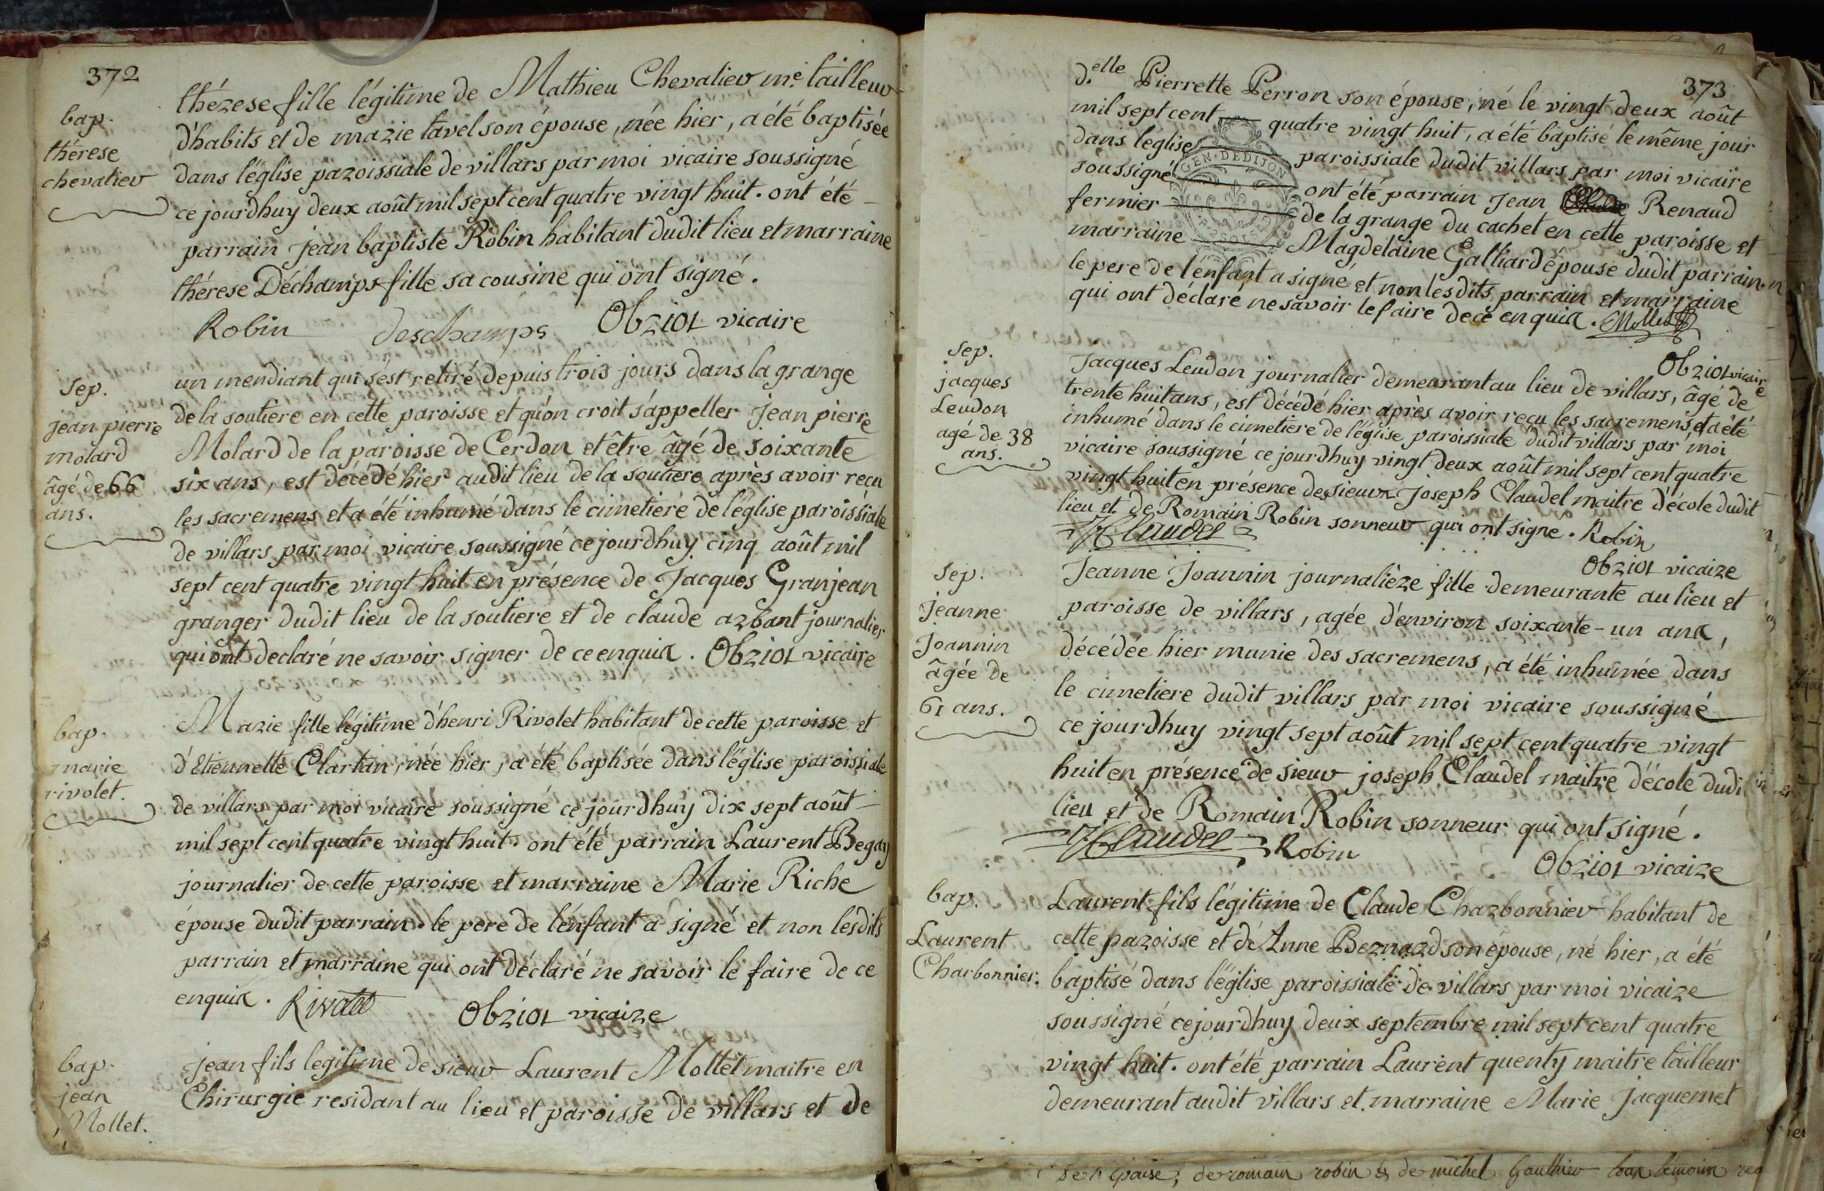 372
bap.
thérese
chevalier
thérese fille légitime de Mathieu Chevalier me. tailleur
d'habits et de marie tavel son épouse, née hier, a été baptisée
dans l'église paroissiale de villars par moi vicaire soussigné
ce jourdhuy deux août mil sept cent quatre vingt huit. ont été
parrain jean baptiste Robin habitant dudit lieu et marraine
thérese Déchamps fille sa cousine qui ont signé.
Robin deschamps Obriot vicaire
Sep.
jean pierre
molard
âgé de 66
ans.
un mendiant qui s'est retiré depuis trois jours dans la grange
de la soutiere en cette paroisse et qu'on croit s'appeller jean pierre
Molard de la paroisse de Cerdon et être âgé de soixante
six ans, est décédé hier audit lieu de la soutiere après avoir recu
les sacremens et a été inhumé dans le cimetiere de l'église paroissiale
de villars par moi vicaire soussigné ce jourdhuy cinq août mil
sept cent quatre vingt huit en présence de Jacques Granjean
granger dudit lieu de la soutiere et de claude arbant journalier
qui ont declaré ne savoir signer de ce enquis. Obriot vicaire
bap.
marie
rivolet.
Marie fille légitime d'henri Rivolet habitant de cette paroisse et
d'Etiennette Clartan, née hier, a été baptisée dans l'église paroissiale
de villars par moi vicaire soussigné ce jourdhuy dix sept août
mil sept cent quatre vingt huit. ont été parrain Laurent Begay
journalier de cette paroisse et marraine Marie Riche
épouse dudit parrain. le pere de l'enfant a signé et non lesdits
parrain et marraine qui ont déclaré ne savoir le faire de ce
enquis. Obriot vicaire
bap.
jean
Mollet.
jean fils legitime de sieur Laurent Mollet maitre en
Chirurgie residant au lieu et paroisse de villars et de
373
d.elle Pierrette Perron son épouse, né le vingt deux août
mil sept cent quatre vingt huit, a été baptisé le même jour
dans l'église paroissiale dudit villars par moi vicaire
soussigné ont été parrain jean Renaud
fermier de la grange du cachet en cette paroisse et
marraine Magdelaine Galliard épouse dudit parrain.
le pere de l'enfant a signé et non lesdits parrain et marraine
qui ont déclaré ne savoir le faire de ce enquis. Mollet
Obriot vicaire
GEN. DE DIJON
Sep.
jacques
Leudon
agé de 38
ans.
Jacques Leudon journalier demeurant au lieu de villars, âgé de
trente huit ans, est décédé hier après avoir recu les sacremens et a été
inhumé dans le cimetiere de l'église paroissiale dudit villars par moi
vicaire soussigné ce jourdhuy vingt deux août mil sept cent quatre
vingt huit en présence de sieur Joseph Claudel maitre d'école dudit
lieu et de Romain Robin sonneur qui ont signé. Robin
Claudel
Obriot vicaire
Sep.
jeanne
Joannin
âgée de
61 ans.
Jeanne Joannin journalière fille demeurante au lieu et
paroisse de villars, agée d'environ soixante-un ans,
décédée hier munie des sacremens, a été inhumée dans
le cimetiere dudit villars par moi vicaire soussigné
ce jourdhuy vingt sept août mil sept cent quatre vingt
huit en présence de sieur joseph Claudel maitre d'école dudi
lieu et de Romain Robin sonneur qui ont signé.
Claudel Robin
Obriot vicaire
bap.
Laurent
Charbonnier.
Laurent fils légitime de Claude Charbonnier habitant de
cette paroisse et de Anne Bernard son épouse, né hier, a été
baptisé dans l'église paroissiale de villars par moi vicaire
soussigné ce jourdhuy deux septembre mil sept cent quatre
vingt huit. ont été parrain Laurent quenty maitre tailleur
demeurant audit villars et marraine Marie Jacquemet
de romain robin & de michel Gauthier